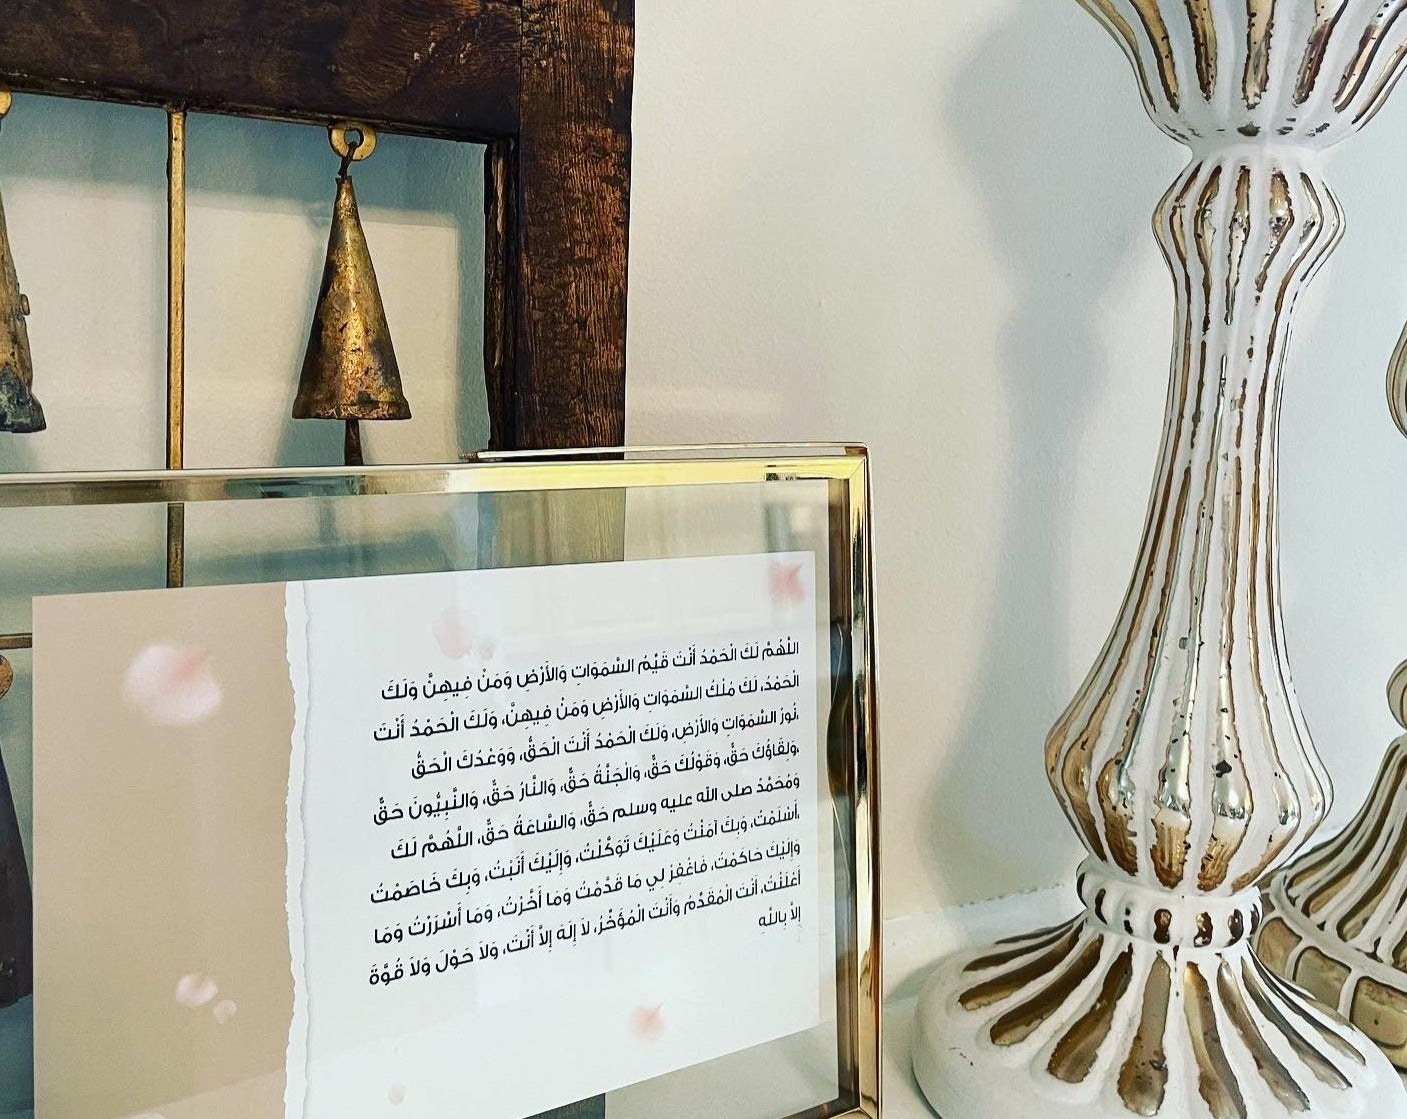 اللَّهُمَّ لَكَ الْحَمْدُ أَنْتَ قَيِّمُ السَّمَوَاتِ وَالأَرْضِ وَمَنْ فِيهِنَّ وَلَكَ
الْحَمْدُ، لَكَ مُلْكُ السَّمَوَاتِ وَالأَرْضِ وَمَنْ فِيهِنَّ، وَلَكَ الْحَمْدُ أَنْتَ
نُورُ السَّمَوَاتِ وَالأَرْضِ، وَلَكَ الْحَمْدُ أَنْتَ الْحَقُّ، وَوَعْدُكَ الْحَقُّ
،وَلِقَاؤُكَ حَقٌّ، وَقَوْلُكَ حَقٌّ، وَالْجَنَّةُ حَقٌّ، وَالنَّارُ حَقٌّ، وَالنَّبِيُّونَ حَقٌّ
وَمُحَمَّدٌ صلى الله عليه وسلم حَقٌّ، وَالسَّاعَةُ حَقٌّ، اللَّهُمَّ لَكَ
،أَسْلَمْتُ، وَبِكَ آمَنْتُ وَعَلَيْكَ تَوَكَّلْتُ، وَإِلَيْكَ أَنَبْتُ، وَبِكَ خَاصَمْتُ
وَإِلَيْكَ حَاكَمْتُ، فَاغْفِرْ لِي مَا قَدَّمْتُ وَمَا أَخَّرْتُ، وَمَا أَسْرَرْتُ وَمَا
أَعْلَنْتُ، أَنْتَ الْمُقَدِّمُ وَأَنْتَ الْمُؤَخِّرُ، لاَ إِلَهَ إِلاَّ أَنْتَ، وَلاَ حَوْلَ وَلاَ قُوَّةَ
إِلاَّ بِاللَّهِ